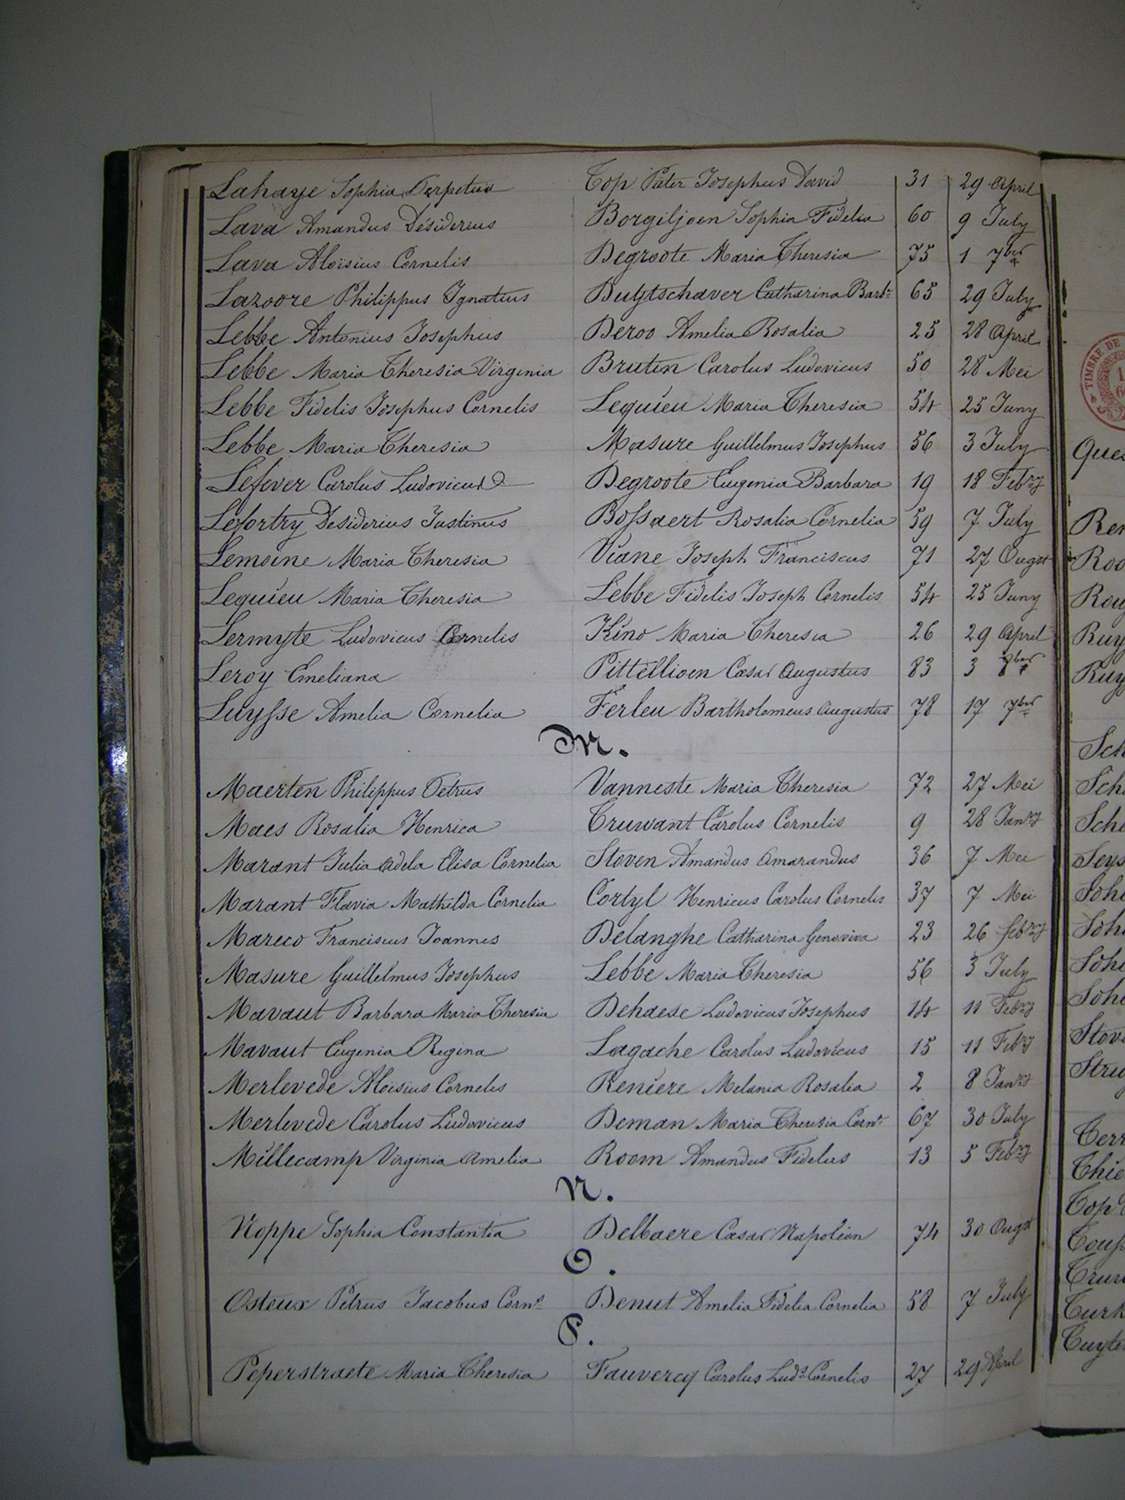 Lahaye Sophia Perpetua Top Pater Josephus David 31 29 April
Lava Amandus Désiderius Borgiljoen Sophia Fidelia 60 9 July
Lava Aloisius Cornelis Degroote Maria Theresia 75 1 7ber
Lazoore Philippus Ignatius Buÿtschaver Catharina Barb: 65 29 July
Lebbe Antonius Josephus Deroo Amelia Rosalia 25 28 April
Lebbe Maria Theresia Virginia Brutin Carolus Ludovicus 50 28 Mei
Lebbe Fidelis Josephus Cornelis Lequieu Maria Theresia 54 25 Juny
Lebbe Maria Theresia Masure Guillelmus Josephus 56 3 July
Lefever Carolus Ludovicus Degroote Eugenia Barbara 19 18 Febry
Lefortry Desiderius Justinus Bossaert Rosalia Cornelia 59 7 July
Lemoine Maria Theresia Viane Joseph Franciscus 71 27 Ougst
Lequieu Maria Theresia Lebbe Fidelis Joseph Cornelis 54 25 Juny
Lermyte Ludovicus Cornelis Kino Maria Theresia 26 29 April
Leroy Emeliana Pittellioen Cæsar Augustus 83 3 8ber
Luysse Amelia Cornelia Ferleu Bartholomeus Augustus 78 17 7ber
M.
Maerten Philippus Petrus Vanneste Maria Theresia 72 27 Mei
Maes Rosalia Henrica Truwant Carolus Cornelis 9 28 Janry
Marant Julia Adela Elisa Cornelia Stoven Amandus Amarandus 36 7 Mei
Marant Flavia Mathilda Cornelia Cortyl Henricus Carolus Cornelis 37 7 Mei
Mareco Franciscus Joannes Delanghe Catharina Genoviva 23 26 febry
Masure Guillelmus Josephus Lebbe Maria Theresia 56 3 July
Mavaut Barbara Maria Theresia Dehaese Ludovicus Josephus 14 11 Febry
Mavaut Eugenia Regina Lagache Carolus Ludovicus 15 11 Febry
Merlevede Aloisius Cornelis Reniere Melania Rosalia 2 8 Janry
Merlevede Carolus Ludovicus Deman Maria Theresia Corna 67 30 July
Millecamp Virginia Amelia Room Amandus Fidelus 13 5 Febry
N.
Noppe Sophia Constantia Delbaere Cæsar Napoléon 74 30 Ougst
O.
Osteux Petrus Jacobus Corns Denut Amelia Fidelia Cornelia 58 7 July
P.
Peperstraete Maria Theresia Fauvercq Carolus Luds Cornelis 27 29 April
TIMBRE DE